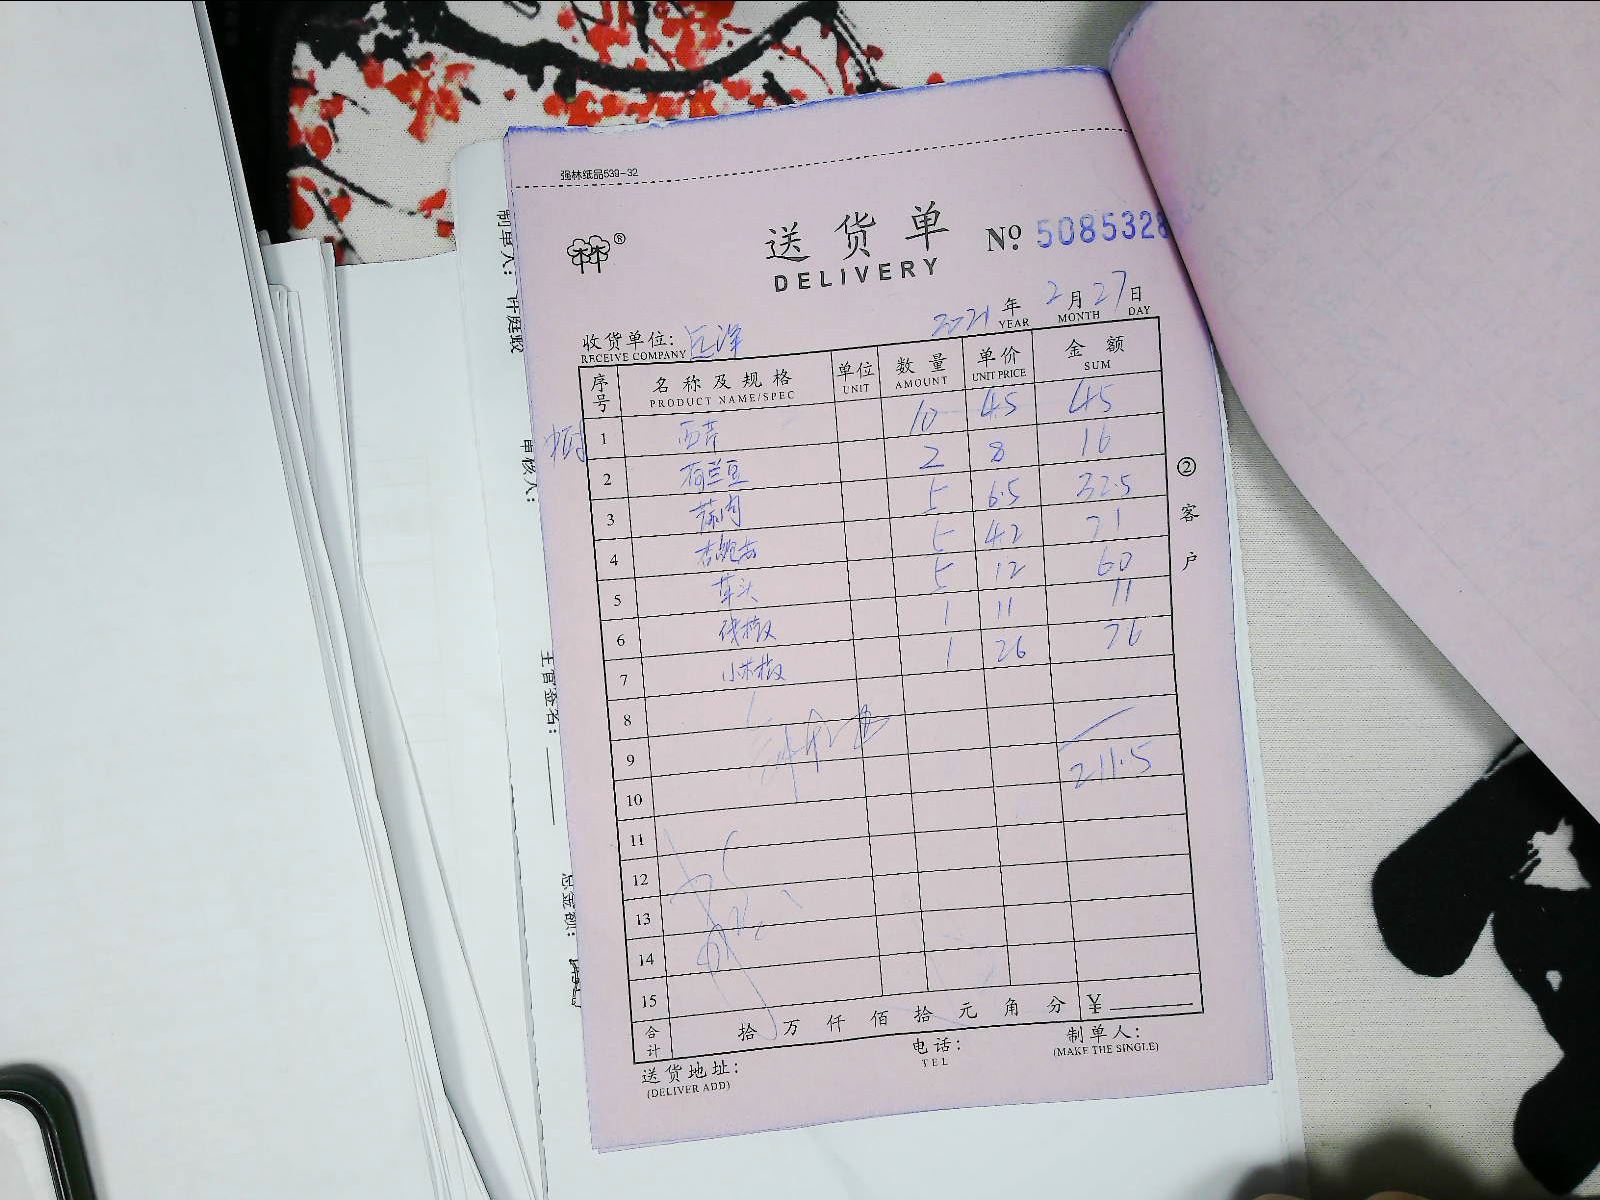 强林纸品539-32
送货单
DELIVERY
№ 5085328
2021 年 2 月 27 日
YEAR MONTH DAY
收货单位: 远洋
RECEIVE COMPANY
序号 名称及规格 单位 数量 单价 金额
PRODUCT NAME/SPEC UNIT AMOUNT UNIT PRICE SUM
1 西芹 10 4.5 45
2 荷兰豆 2 8 16
3 蒜肉 5 6.5 32.5
4 杏鲍菇 5 4.2 21
5 草头 5 12 60
6 线椒 1 11 11
7 小米椒 1 26 26
8
9
211.5
10
11
12
13
14
15
合计 拾 万 仟 佰 拾 元 角 分 ¥
② 客户
送货地址:
(DELIVER ADD)
电话:
TEL
制单人:
(MAKE THE SINGLE)
制单人:
审核人:
主管签名:
总金额: